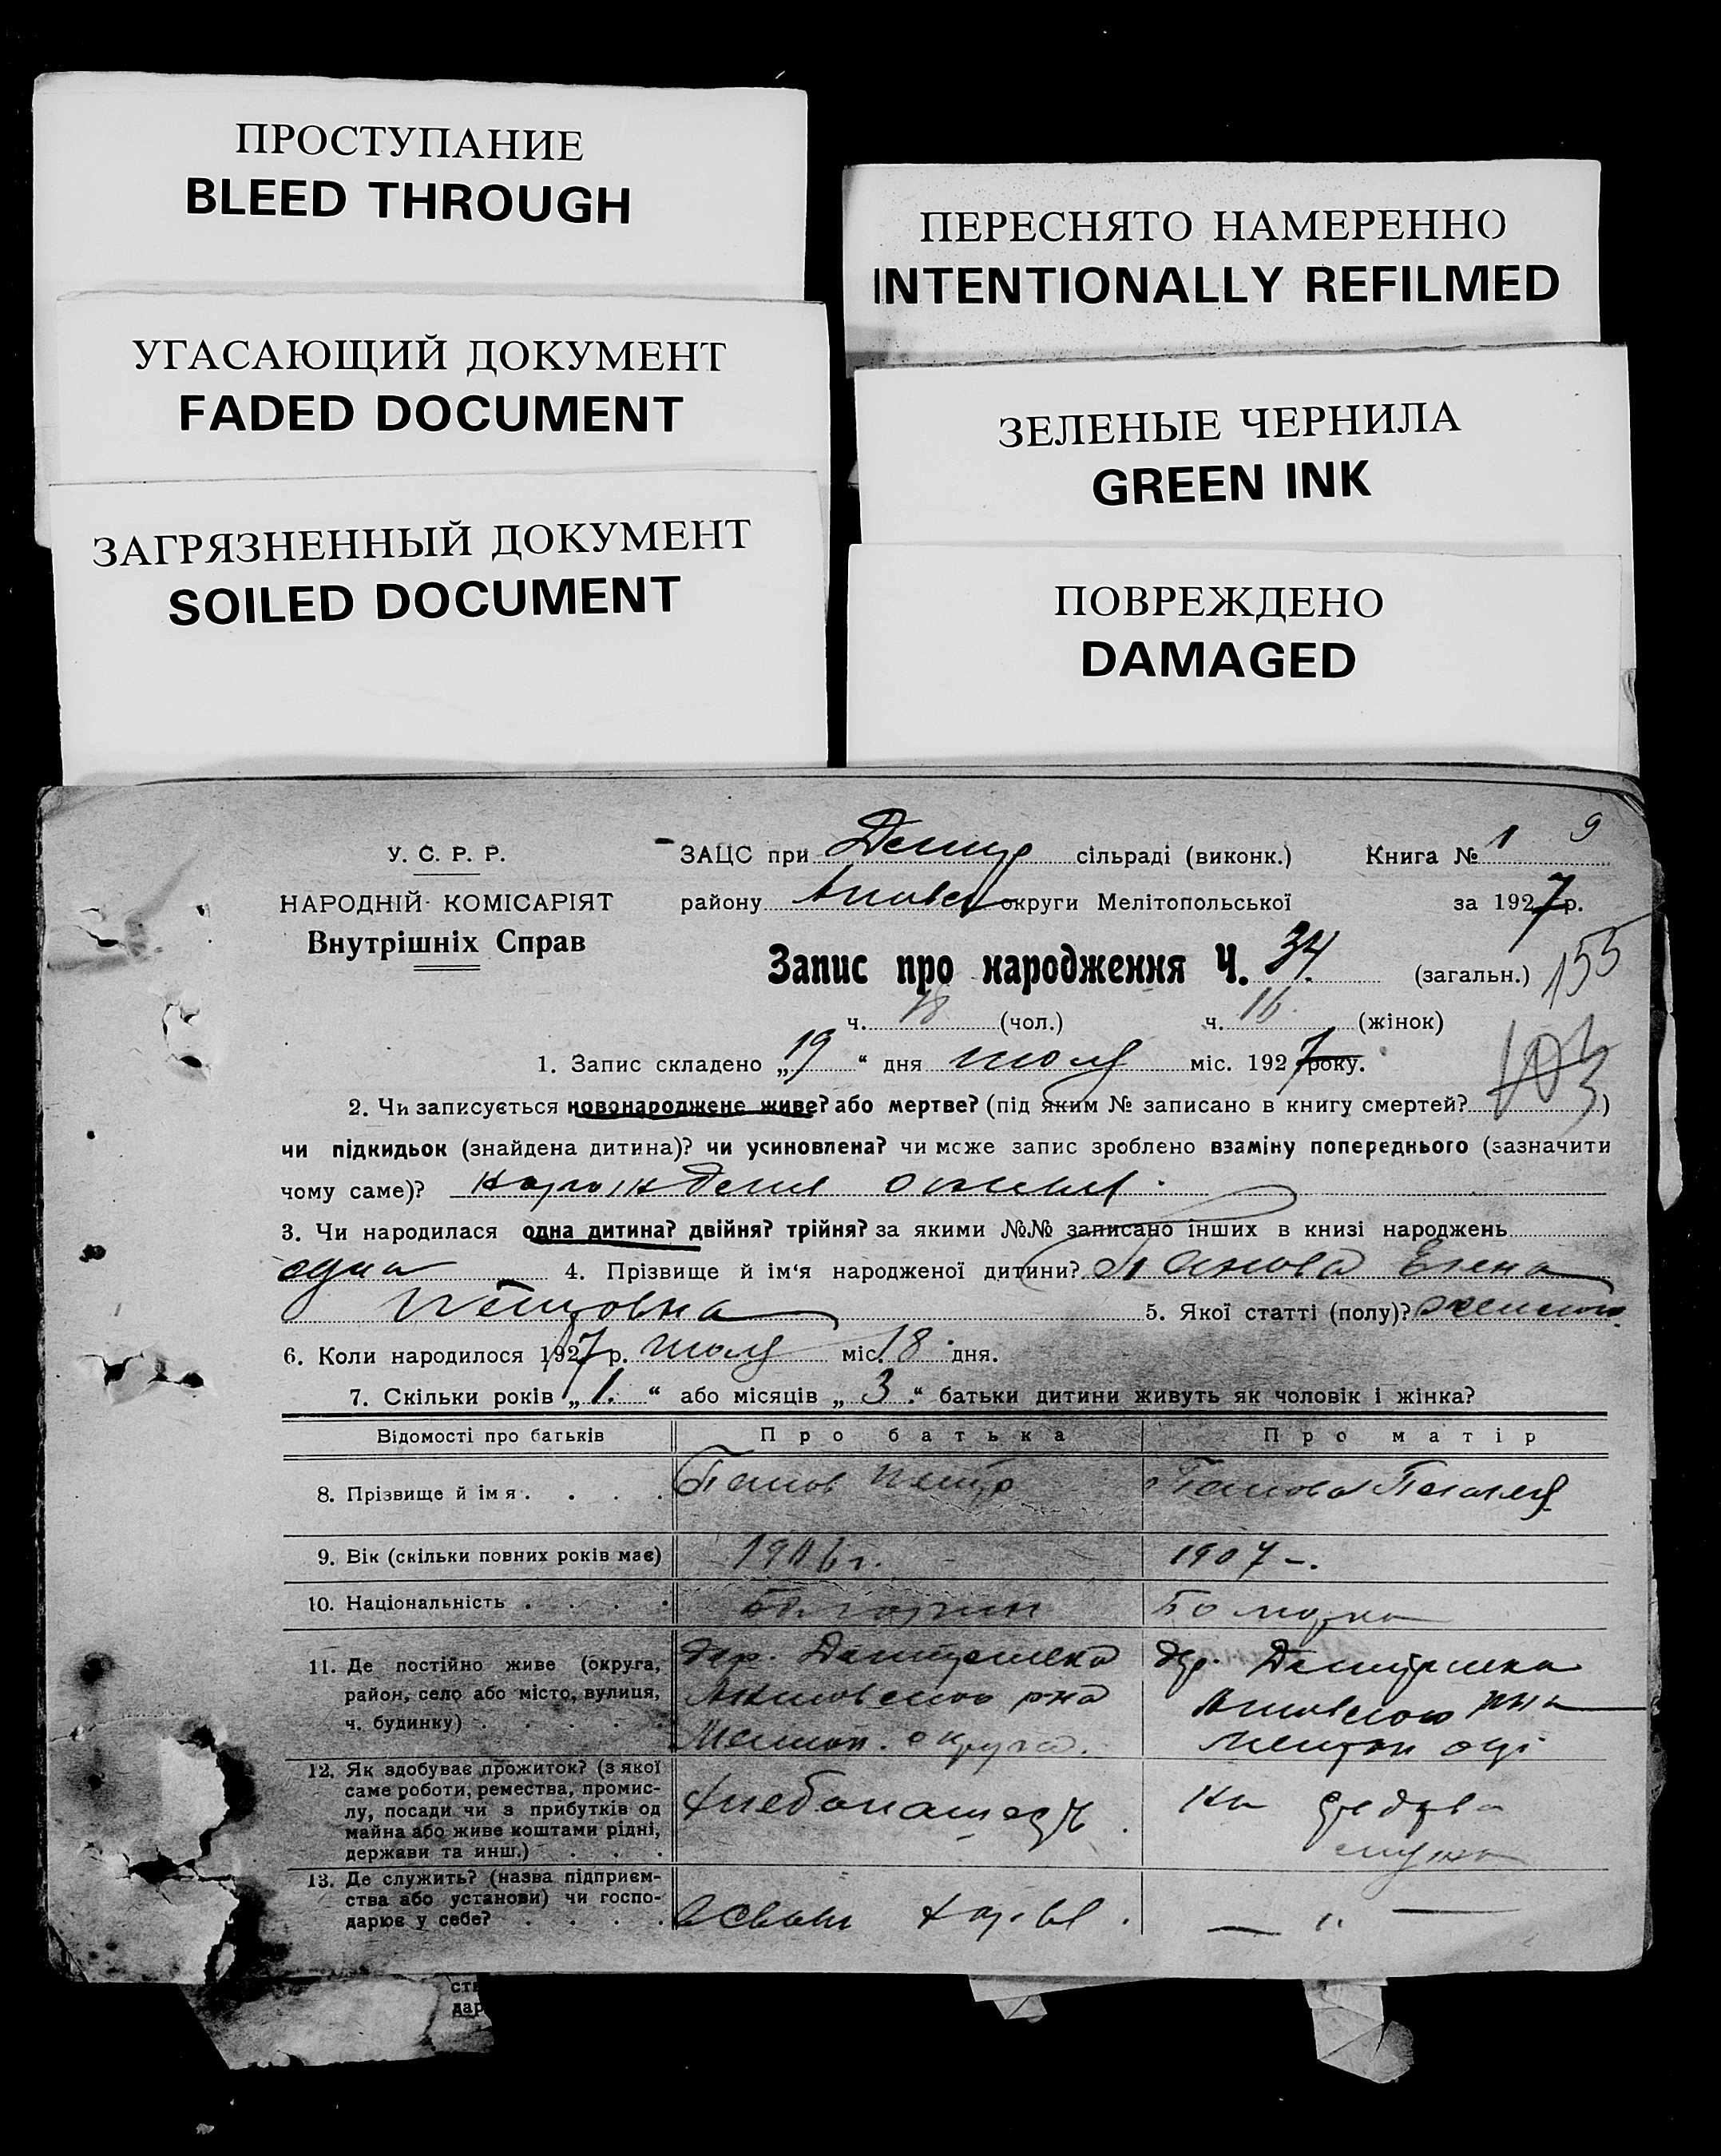 ПРОСТУПАНИЕ
BLEED THROUGH
УГАСАЮЩИЙ ДОКУМЕНТ
FADED DOCUMENT
ЗАГРЯЗНЕННЫЙ ДОКУМЕНТ
SOILED DOCUMENT
ПЕРЕСНЯТО НАМЕРЕННО
INTENTIONALLY REFILMED
ЗЕЛЕНЫЕ ЧЕРНИЛА
GREEN INK
ПОВРЕЖДЕНО
DAMAGED
У. С. Р. Р.
НАРОДНІЙ КОМІСАРІЯТ
Внутрішніх Справ
ЗАЦС при сільраді (виконк.) Книга № 1 9
району округи Мелітопольської за 1927 р.
Запис про народження Ч. 34 (загальн.) 155
ч. 18 (чол.) ч. 16 (жінок)
1. Запис складено „19“ дня июля міс. 1927 року.
2. Чи записується новонароджене живе? або мертве? (під яким № записано в книгу смертей? )
чи підкидьок (знайдена дитина)? чи усиновлена? чи може запис зроблено взаміну попереднього (зазначити
чому саме)?
3. Чи народилася одна дитина? двійня? трійня? за якими №№ записано інших в книзі народжень
одна 4. Прізвище й ім‘я народженої дитини? Панова Елена
Петровна 5. Якої статті (полу)? женского
6. Коли народилося 1927 р. июля міс. 18 дня.
7. Скільки років „1.“ або місяців „3.“ батьки дитини живуть як чоловік і жінка?
Відомості про батьків Про батька Про матір
8. Прізвище й імя . . . . Панов Петр Панова Пелагея
9. Вік (скільки повних років має) 1906 г. 1907 –.
10. Національність . . . . Болгарин Болгарка
11. Де постійно живе (округа,
район, село або місто, вулиця,
ч. будинку) . . . . .
дер.
Акимовского рна
Мелитоп. округа.
дер.
Акимовского рна
12. Як здобуває прожиток? (з якої
саме роботи, ремества, промис-
лу, посади чи з прибутків од
майна або живе коштами рідні,
держави та инш.) . . .
Хлебопашец
На средства
мужа
13. Де служить? (назва підприєм-
ства або установи) чи госпо-
дарює у себе? . . . .
— „ —
ств
дар